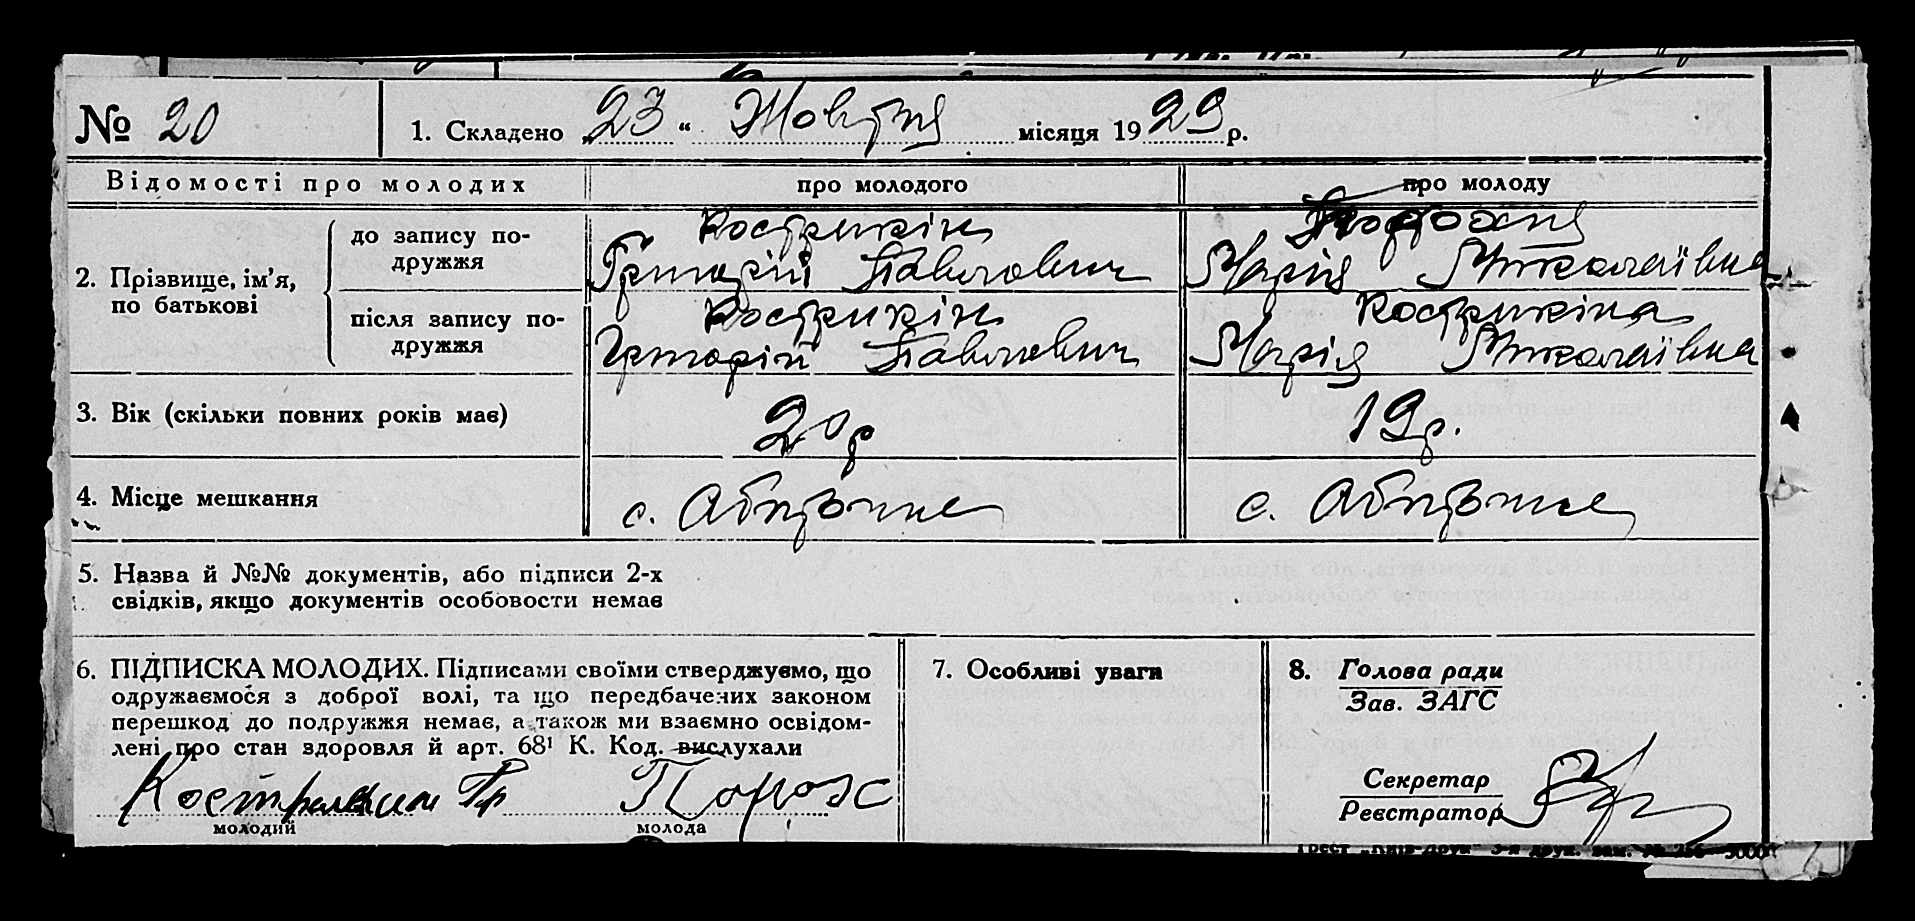 № 20
1. Складено 23 “ Жовтня місяця 1929 р.
Відомості про молодих
про молодого
про молоду
2. Прізвище, ім’я, по батькові
до запису по-
дружжя
Кострикін
Григорій Павлович
Марія Миколаївна
після запису по-
дружжя
Кострикін
Григорій Павлович
Кострикіна
Марія Миколаївна
3. Вік (скільки повних років має)
20 р
19 р.
4. Місце мешкання
с.
с.
5. Назва й №№ документів, або підписи 2-х
свідків, якщо документів особовости немає
6. ПІДПИСКА МОЛОДИХ. Підписами своїми стверджуємо, що
одружаємося з доброї волі, та що передбачених законом
перешкод до подружжя немає, а також ми взаємно освідом-
лені про стан здоровля й арт. 68¹ К. Код. вислухали
молодий
молода
7. Особливі уваги
8. Голова ради
Зав. ЗАГС
Секретар
Реєстратор